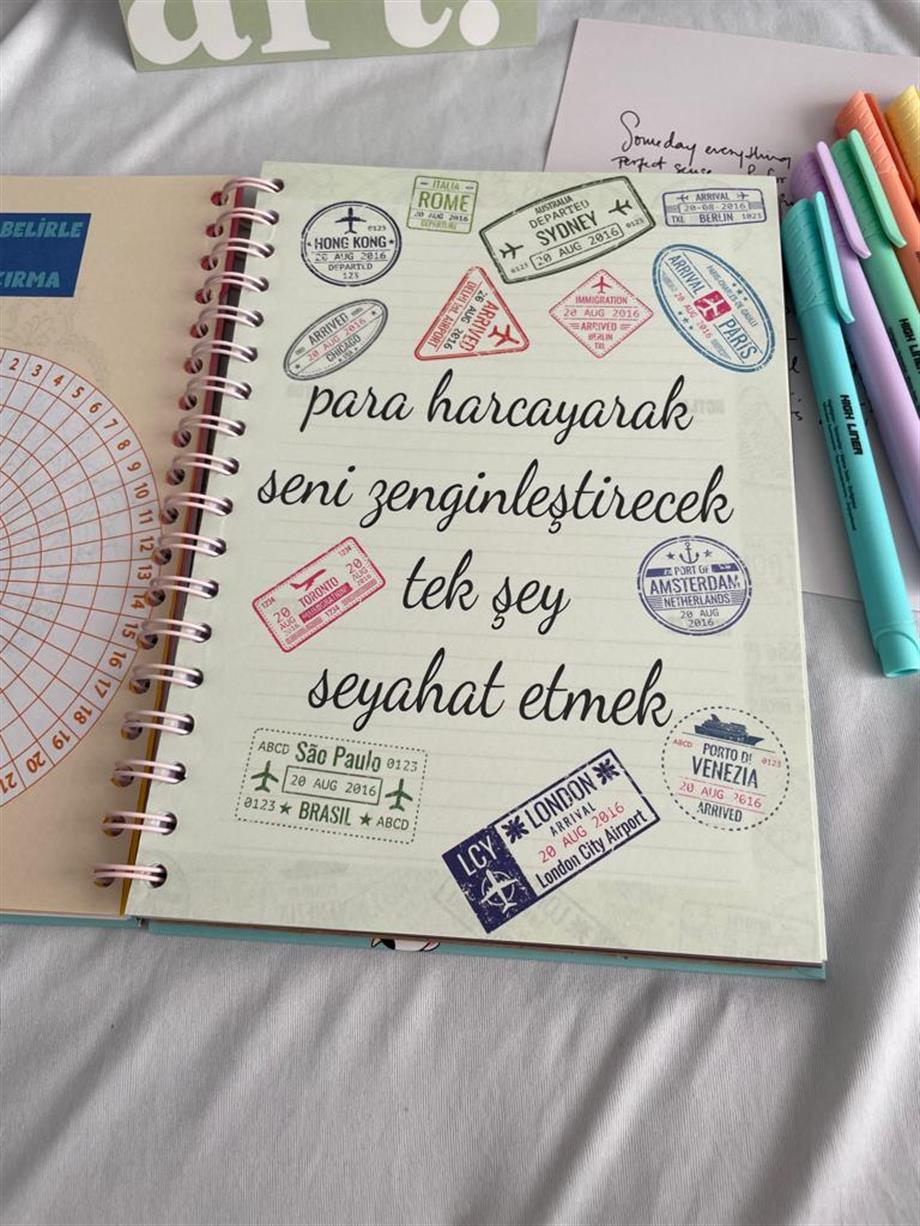 art.
Someday everything
perfect sense
BELİRLE
ITALIA
ROME
20 AUG 2016
DEPARTURE
0123
HONG KONG
20 AUG 2016
DEPARTED
123
AUSTRALIA
DEPARTED
SYDNEY
20 AUG 2016
0123
ARRIVAL
20-08-2016
TXL BERLIN 0123
ARRIVED
20 AUG 2016
CHICAGO
USA
DELHI Int. AIRPORT
ARRIVED
20 AUG 2016
IMMIGRATION
20 AUG 2016
ARRIVED
BERLIN
TXL
ARRIVAL
PARIS-CHARLES DE GAULLE
20 AUG 2016
PARIS
para harcayarak
seni zenginleştirecek
tek şey
seyahat etmek
1234
TORONTO
20
AUG
2016
IMMIGRATION
20
AUG
2016
1234
PORT OF
AMSTERDAM
NETHERLANDS
20 AUG
2016
ABCD São Paulo 0123
20 AUG 2016
0123 ★ BRASIL ★ ABCD
LCY
LONDON
ARRIVAL
20 AUG 2016
London City Airport
ABCD PORTO DI 0123
VENEZIA
20 AUG 2016
ARRIVED
2 3 4 5 6 7 8 9 10 11 12 13 14 15 16 17 18 19 20 21
HIGH LINER
HIGH LINER
HIGH LINER